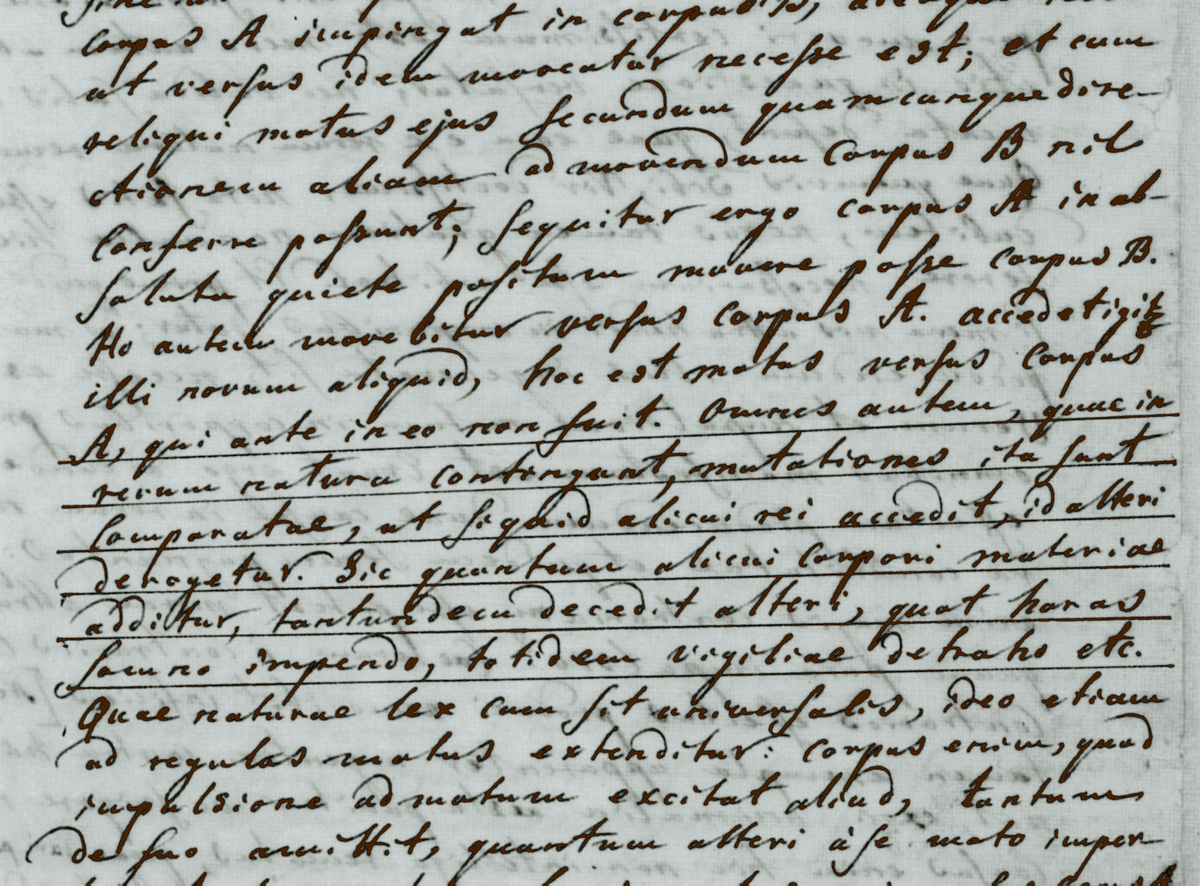 corpus A impingat in corpus B,
ut versus idem moveatur necesse est; et cum
reliqui motus ejus secundum quamcunque dire-
ctionem aliam ad movendum Corpus B nil
Conferre possunt; sequitur ergo corpus A in ab-
soluta quiete positum movere posse corpus B.
Ho autem movebitur versus corpus A. accedet igitr
illi novum aliquid, hoc est motus versus Corpus
A, qui ante in eo non fuit. Omnes autem, quae in
rerum natura contingunt, mutationes ita sunt
Comparatae, ut siquid alicui rei accedit, id alteri
derogetur. Sic quantum alicui Corpori materiae
additur, tantundem decedit alteri, quot horas
somno impendo, totidem vigiliae detraho etc.
Quae naturae lex cum sit universalis, ideo etiam
ad regulas motus extenditur: corpus enim, quod
impulsione ad motum excitat aliud, tantum
de suo amittit, quantum alteri à se moto imper-